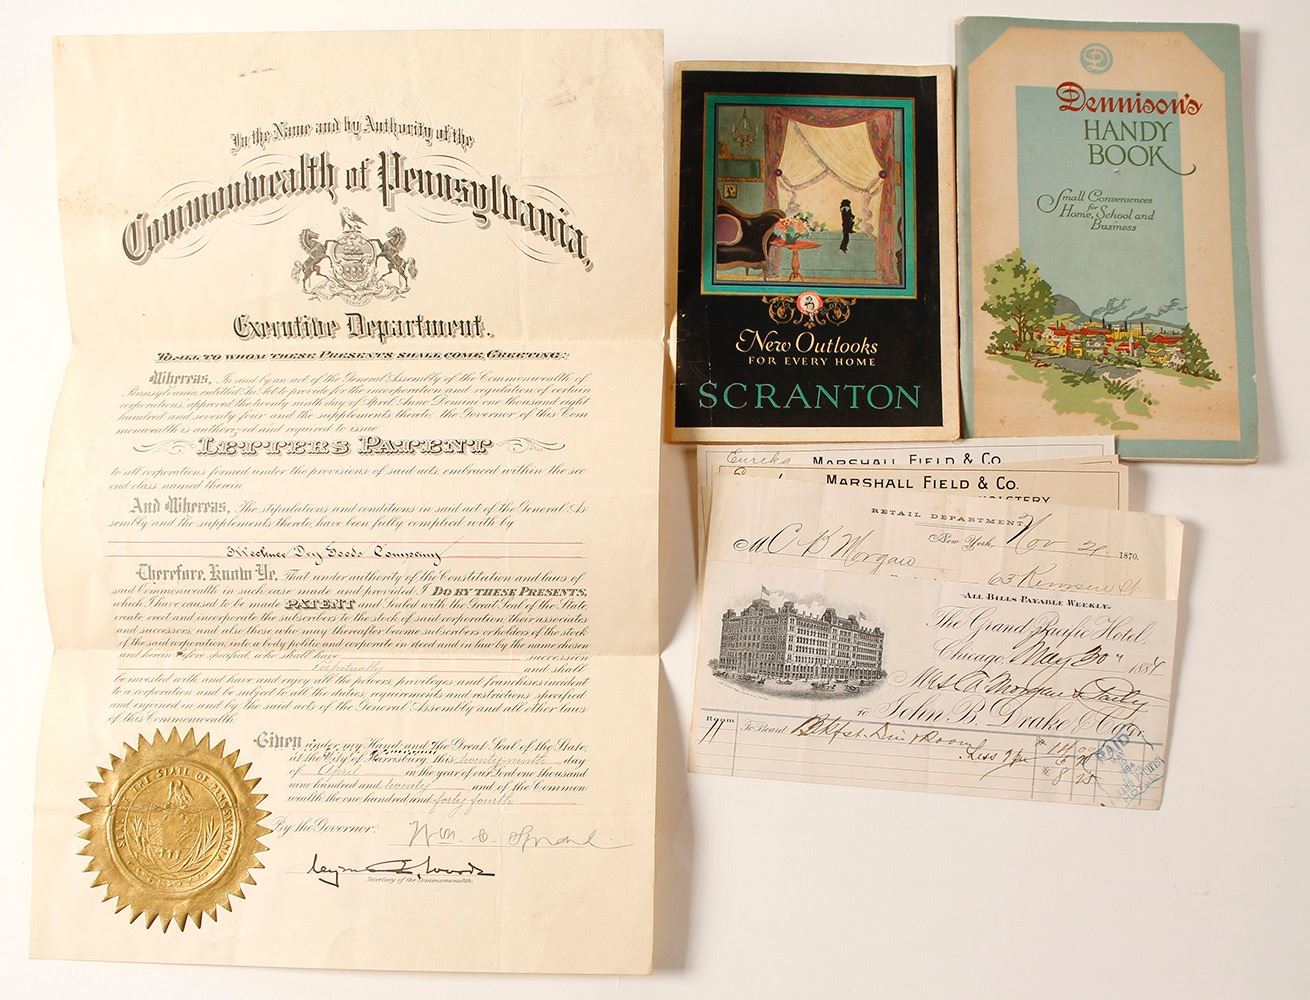 In the Name and by Authority of the
Commonwealth of Pennsylvania,
Executive Department.
To all to whom these Presents shall come, Greeting:
Whereas, In and by an act of the General Assembly of the Commonwealth of
Pennsylvania entitled An Act to provide for the incorporation and regulation of certain
corporations approved the twenty ninth day of April Anno Domini one thousand eight
hundred and seventy four and the supplements thereto, the Governor of this Com
monwealth is authorized and required to issue
LETTERS PATENT
to all corporations formed under the provisions of said acts embraced within the sec
ond class named therein
And Whereas, The stipulations and conditions in said act of the General As
sembly and the supplements thereto have been fully complied with by
Dry Goods Company
Therefore, Know Ye, That under authority of the Constitution and laws of
said Commonwealth in such case made and provided I DO BY THESE PRESENTS,
which I have caused to be made PATENT and Sealed with the Great Seal of the State,
create, erect and incorporate the subscribers to the stock of said corporation, their associates
and successors, and also those who may thereafter become subscribers or holders of the stock
of the said corporation, into a body politic and corporate in deed and in law by the name chosen
and herein before specified, who shall have succession
Perpetually and shall
be invested with and have and enjoy all the powers, privileges and franchises incident
to a corporation and be subject to all the duties, requirements and restrictions specified
and enjoined in and by the said acts of the General Assembly and all other laws
of this Commonwealth.
Given under my Hand and the Great Seal of the State,
at the City of Harrisburg, this twenty ninth day
of April in the year of our Lord one thousand
nine hundred and twenty and of the Common
wealth the one hundred and forty fourth
By the Governor:
Wm. C. Sproul
Secretary of the Commonwealth.
SEAL OF THE STATE OF PENNSYLVANIA
New Outlooks
FOR EVERY HOME
SCRANTON
D
Dennison's
HANDY
BOOK
Small Conveniences
for
Home, School and
Business
Eureka MARSHALL FIELD & CO.
MARSHALL FIELD & CO.
UPHOLSTERY
RETAIL DEPARTMENT
New York, Nov 1870.
M C B Morgan
63 Remsen St
ALL BILLS PAYABLE WEEKLY.
The Grand Pacific Hotel
Chicago, May 30 1884
Mrs C B Morgan & Party
To John B. Drake & Co Dr.
Room To Board
Less
$ 8 25
PAID